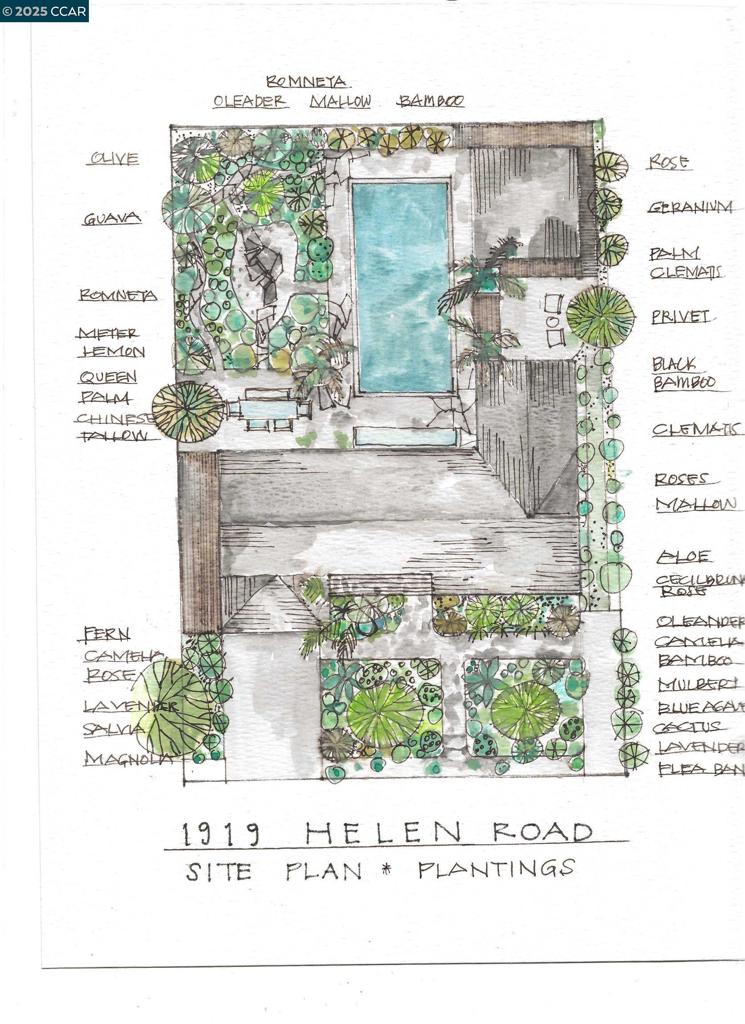 © 2025 CCAR
ROMNEYA
OLEADER MALLOW BAMBOO
OLIVE
GUAVA
ROMNETA
METER
LEMON
QUEEN
PALM
CHINESE
TALLOW
FERN
CAMELIA
ROSE
LAVENDER
SALVIA
MAGNOLIA
ROSE
GERANIUM
PALM
CLEMATIS
PRIVET
BLACK
BAMBOO
CLEMATIS
ROSES
MALLOW
ALOE
CECILBRUN
ROSE
OLEANDER
CAMELIA
BAMBOO
MULBERI
BLUE AGAVE
CACTUS
LAVENDER
FLEA BAN
1919 HELEN ROAD
SITE PLAN * PLANTINGS